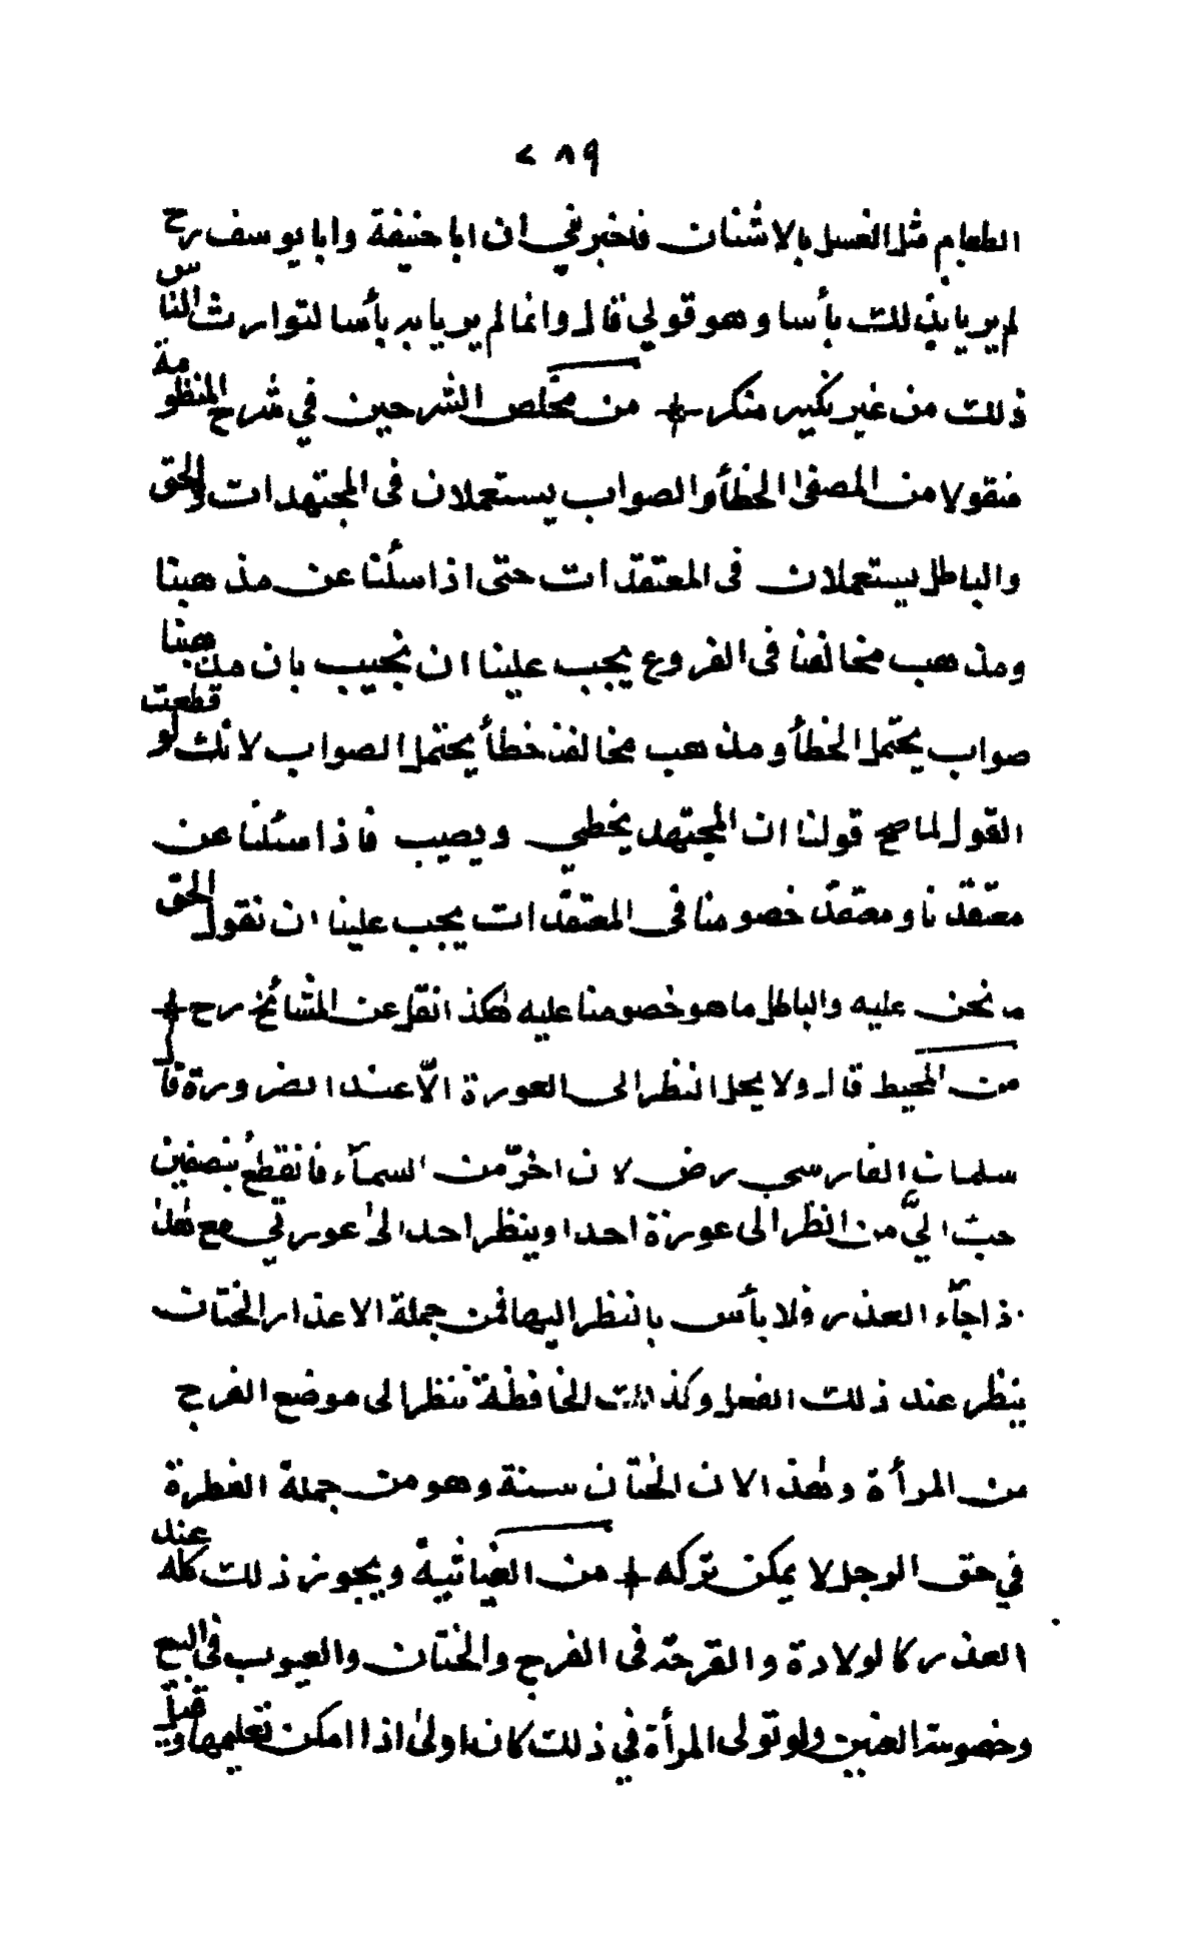 ٢٨٩
الطعام مثل الغسل بالاشنان فاخبرني ان ابا حنيفة وابا يوسف رح
لم يريا بذلك بأسا وهو قولي قال وانما لم يريا به بأسا لتوارث الناس
ذلك من غير نكير منكر + من مخلص الشرحين في شرح المنظومة
منقولا من المصفى الخطأ والصواب يستعملان فى المجتهدات والحق
والباطل يستعملان فى المعتقدات حتى اذا سئلنا عن مذهبنا
ومذهب مخالفنا فى الفروع يجب علينا ان نجيب بان مذهبنا
صواب يحتمل الخطأ ومذهب مخالفنا خطأ يحتمل الصواب لانك لو قطعت
القول لما صح قولنا ان المجتهد يخطي ويصيب فاذا سئلنا عن
معتقدنا ومعتقد خصومنا فى المعتقدات يجب علينا ان نقول الحق
ما نحن عليه والباطل ما هو خصومنا عليه هكذا نقل عن المشائخ رح +
من المحيط قال ولا يحل النظر الى العورة الا عند الضرورة قال
سلمان الفارسي رض لان اخرّ من السمآء فانقطع بنصفين
احب اليَّ من انظر الى عورة احد او ينظر احد الى عورتي مع هذا
اذا جآء العذر فلا بأس بالنظر اليها فمن جملة الاعذار الختان
ينظر عند ذلك الفعل وكذلك الخافظة تنظر الى موضع الفرج
من المرأة وهذا لان الختان سنة وهو من جملة الفطرة
في حق الرجل لا يمكن تركه + من الغياثية ويجوز ذلك كله عند
العذر كالولادة والقرحة فى الفرج والختان والعيوب فى البيع
وخصومة العنين ولو تولى المرأة في ذلك كان اولى اذا امكن تعليمها وقيل